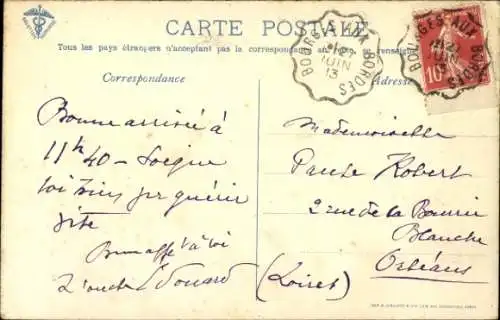 CARTE POSTALE
Tous les pays étrangers n'acceptant pas la correspondance au recto, se renseigner
Correspondance
Adresse
BOURGES AUX BORDES
JUIN
13
BOURGES AUX BORDES
10
Bonne arrivée à
11h40 – Soigne
toi bien pr guérir
vite
Bonne affon à toi
L'oncle Edouard
Mademoiselle
Paule Robert
2 rue de la
Blanche
Orléans
(Loiret)